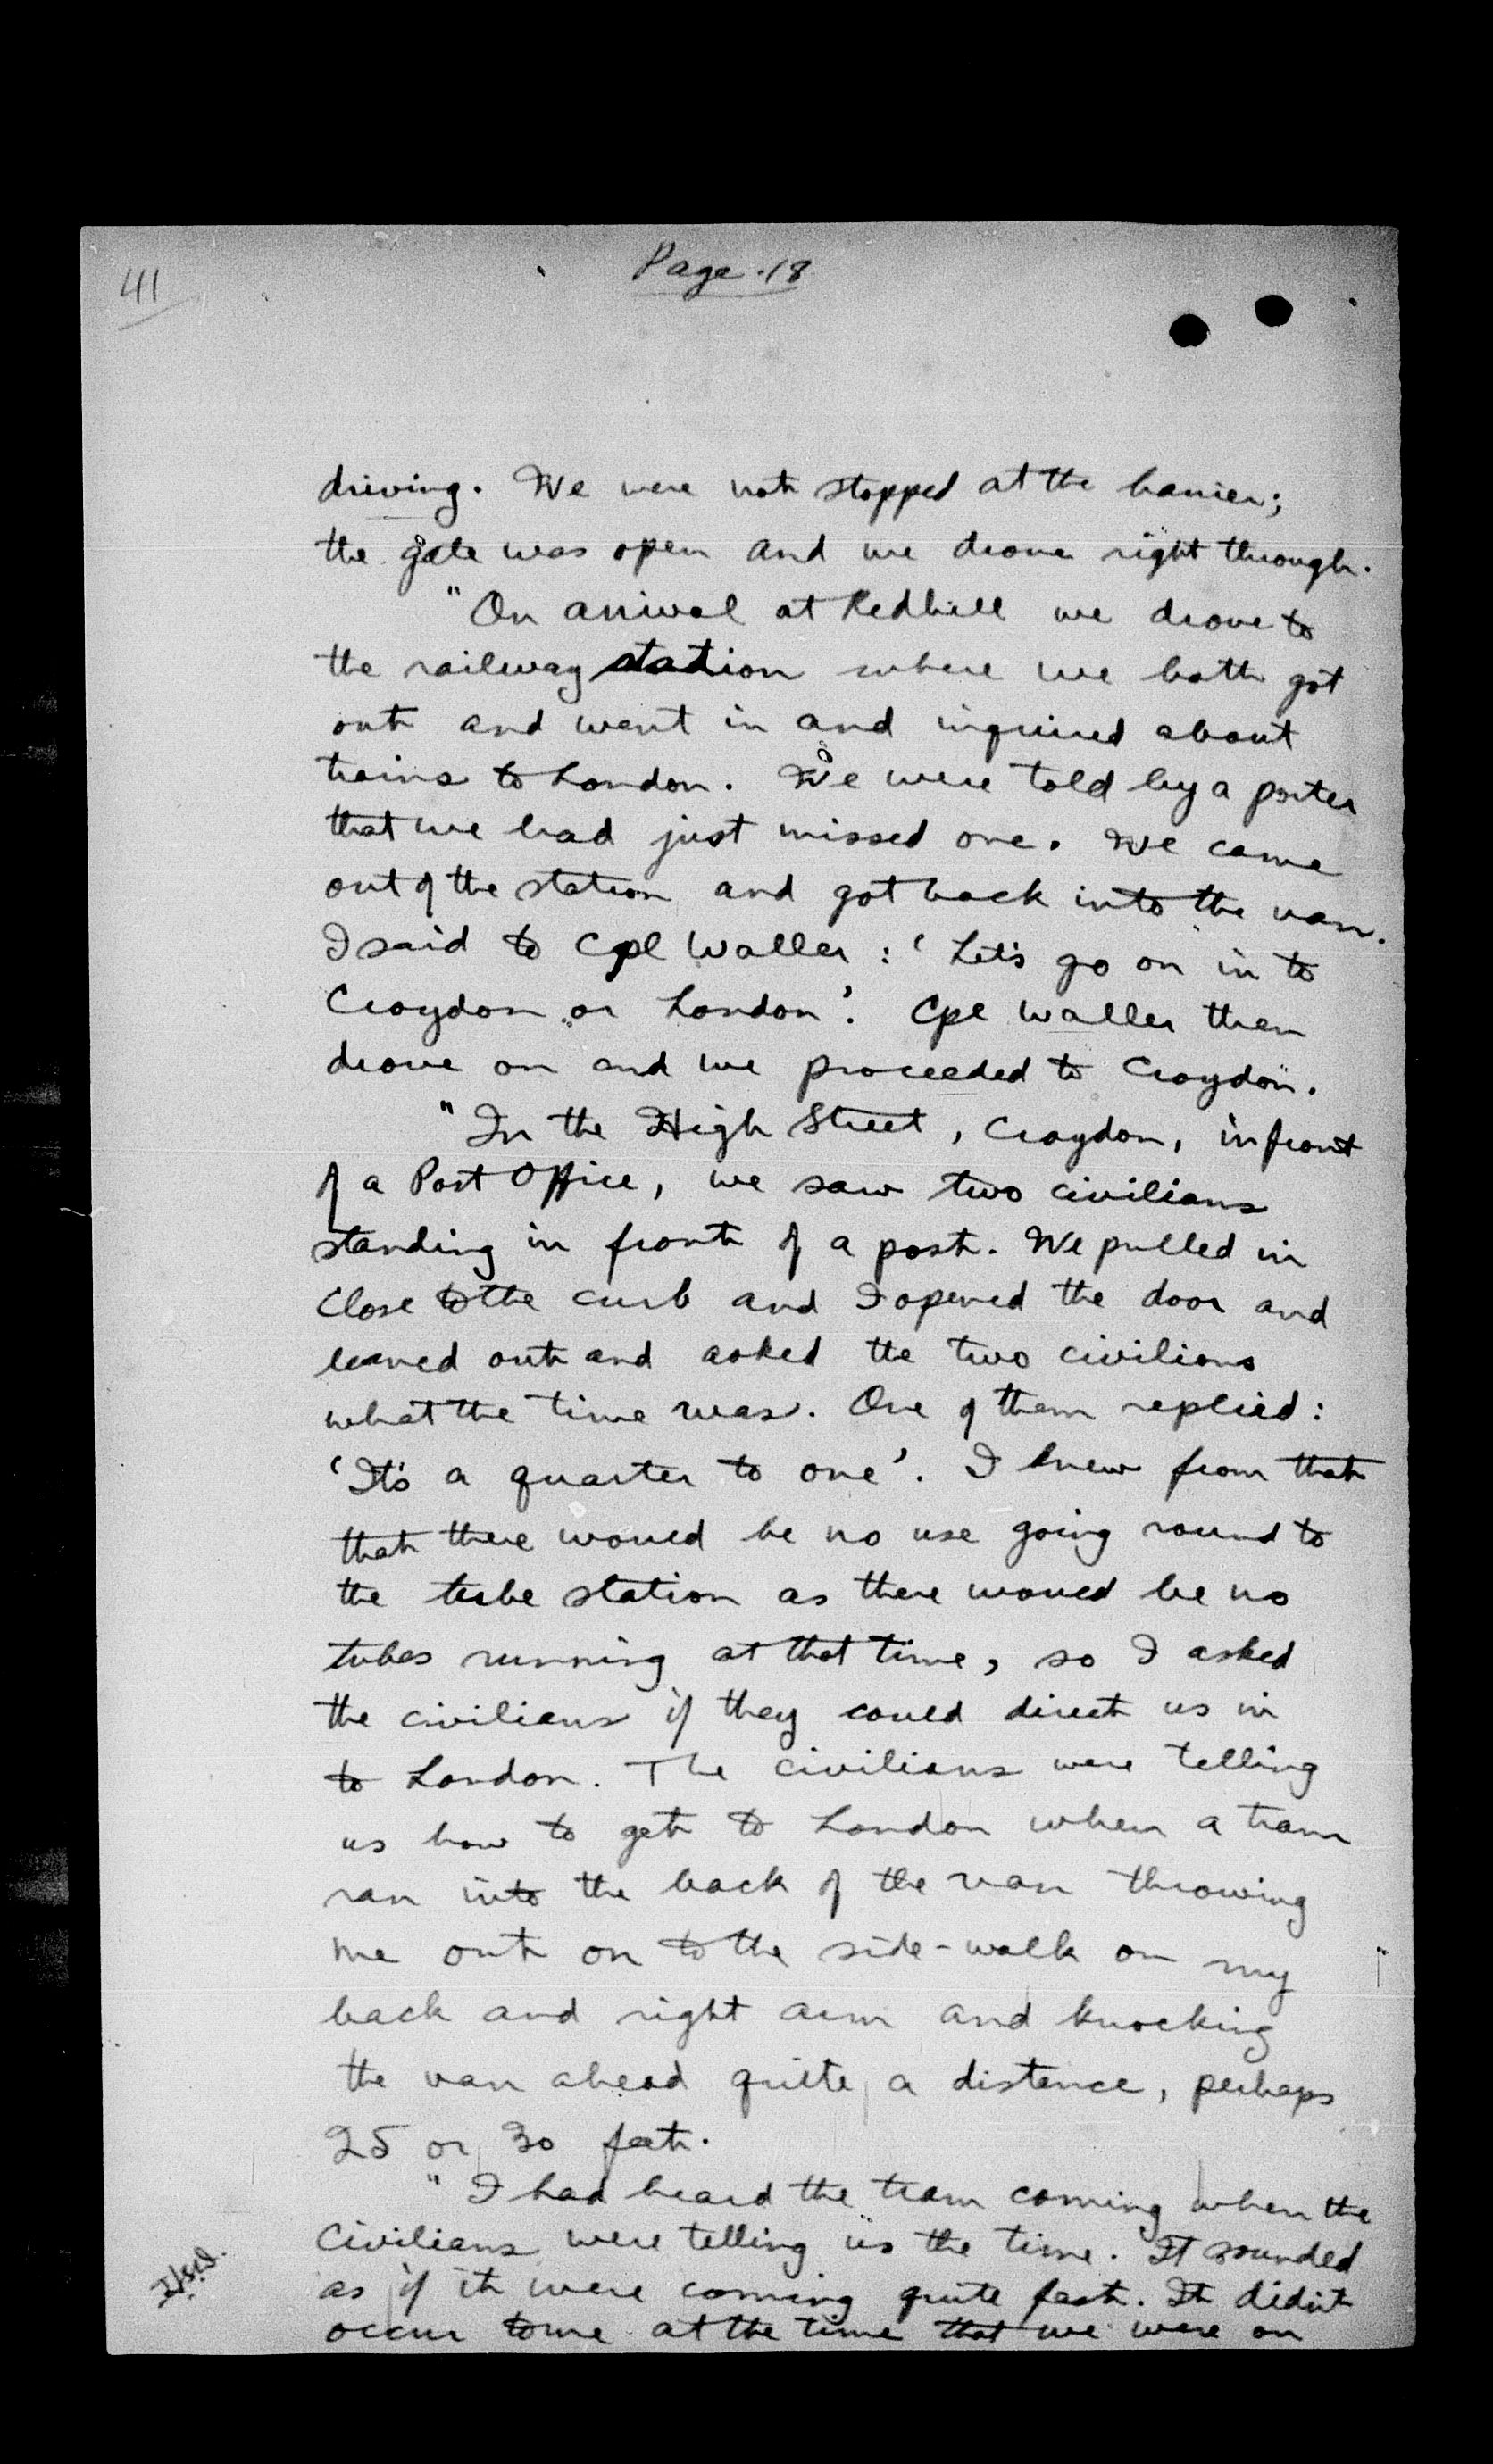 41
Page 18
driving. We were not stopped at the barrier;
the gate was open and we drove right through.
"On arrival at Redhill we drove to
the railway station where we both got
out and went in and inquired about
trains to London. We were told by a porter
that we had just missed one. We came
out of the station and got back into the van.
I said to Cpl Waller : 'Let's go on in to
Croydon or London'. Cpl Waller then
drove on and we proceeded to Croydon.
"In the High Street, Croydon, in front
of a Post Office, we saw two civilians
standing in front of a post. We pulled in
close to the curb and I opened the door and
leaned out and asked the two civilians
what the time was. One of them replied :
'It's a quarter to one'. I knew from that
that there would be no use going round to
the tube station as there would be no
tubes running at that time, so I asked
the civilians if they could direct us in
to London. The civilians were telling
us how to get to London when a tram
ran into the back of the van throwing
me out on to the side-walk on my
back and right arm and knocking
the van ahead quite a distance, perhaps
25 or 30 feet.
"I had heard the tram coming when the
civilians were telling us the time. It sounded
as if it were coming quite fast. It didn't
occur to me at the time that we were on